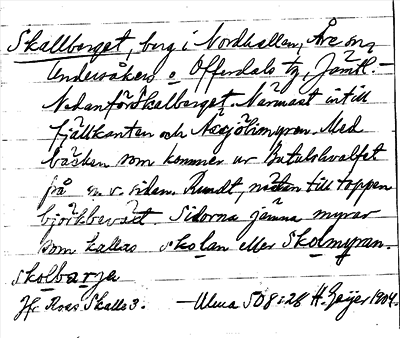 Skallberget, berg i Nordhallen, Åre sn,
Undersåkers o. Offerdals tg, Jämtl. –
Nedanför Skalberget. Närmast intill
fjällkanten och Med
bäcken som kommer ur
på n. v. sidan. Rundt, nästan till toppen
björkbevext. Sidorna jämna myrar
som kallas skolan eller Skolmyran.
skolbarja
Jfr Ross Skalle 3. – Ulma 508:28 H. Geijer 1904.